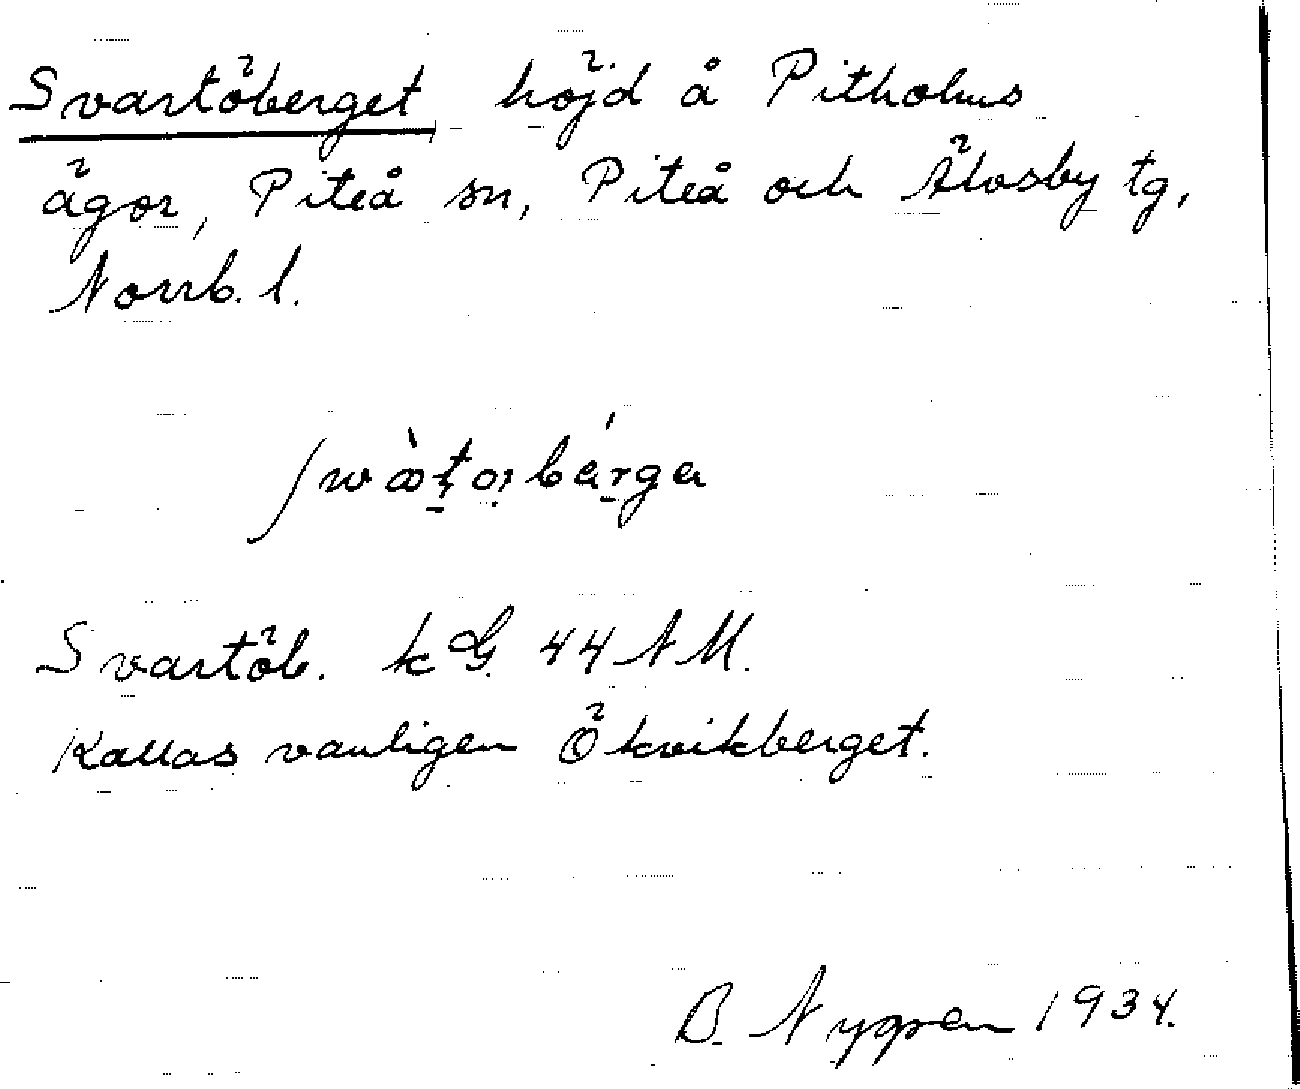 Svartöberget höjd å Pitholms
ägor, Piteå sn, Piteå och Älvsby tg,
Norrb. l.
Svartöb. kG 44 NM.
Kallas vanligen Ökvikberget.
B. Nygren 1934.